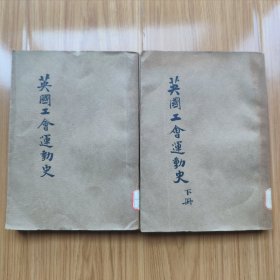 英國工會運動史
英國工會運動史
下冊